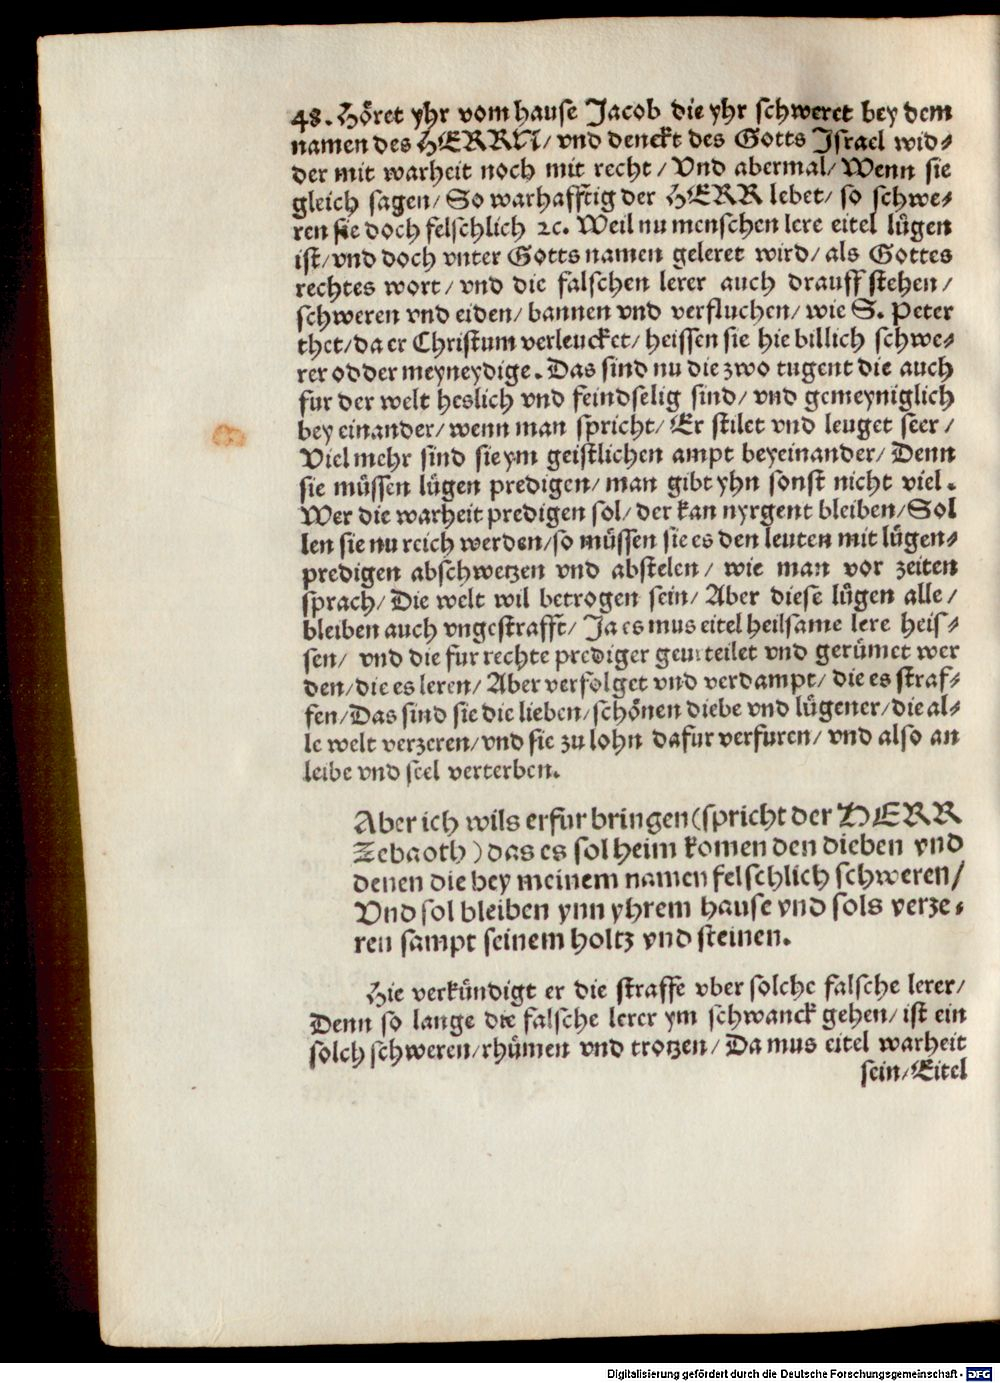 48. Höret yhr vom hause Jacob die yhr schweret bey dem
namen des HERRN/ vnd denckt des Gotts Israel wid-
der mit warheit noch mit recht/ Vnd abermal/ Wenn sie
gleich sagen/ So warhafftig der HERR lebet/ so schwe-
ren sie doch felschlich ꝛc. Weil nu menschen lere eitel lügen
ist/ vnd doch vnter Gotts namen geleret wird/ als Gottes
rechtes wort/ vnd die falschen lerer auch drauff stehen/
schweren vnd eiden/ bannen vnd verfluchen/ wie S. Peter
thet/ da er Christum verleucket/ heissen sie hie billich schwe-
rer odder meyneydige. Das sind nu die zwo tugent die auch
fur der welt heslich vnd feindselig sind/ vnd gemeyniglich
bey einander/ wenn man spricht/ Er stilet vnd leuget seer/
Viel mehr sind sie ym geistlichen ampt beyeinander/ Denn
sie müssen lügen predigen/ man gibt yhn sonst nicht viel.
Wer die warheit predigen sol/ der kan nyrgent bleiben/ Sol
len sie nu reich werden/ so müssen sie es den leuten mit lügen-
predigen abschwetzen vnd abstelen/ wie man vor zeiten
sprach/ Die welt wil betrogen sein/ Aber diese lügen alle/
bleiben auch vngestrafft/ Ja es mus eitel heilsame lere heis-
sen/ vnd die fur rechte prediger geurteilet vnd gerümet wer
den/ die es leren/ Aber verfolget vnd verdampt/ die es straf-
fen/ Das sind sie die lieben/ schönen diebe vnd lügener/ die al-
le welt verzeren/ vnd sie zu lohn dafur verfuren/ vnd also an
leibe vnd seel verterben.
Aber ich wils erfur bringen (spricht der HERR
Zebaoth) das es sol heim komen den dieben vnd
denen die bey meinem namen felschlich schweren/
Vnd sol bleiben ynn yhrem hause vnd sols verze-
ren sampt seinem holtz vnd steinen.
Hie verkündigt er die straffe vber solche falsche lerer/
Denn so lange die falsche lerer ym schwanck gehen/ ist ein
solch schweren/ rhümen vnd trotzen/ Da mus eitel warheit
sein/ Eitel
Digitalisierung gefördert durch die Deutsche Forschungsgemeinschaft - DFG